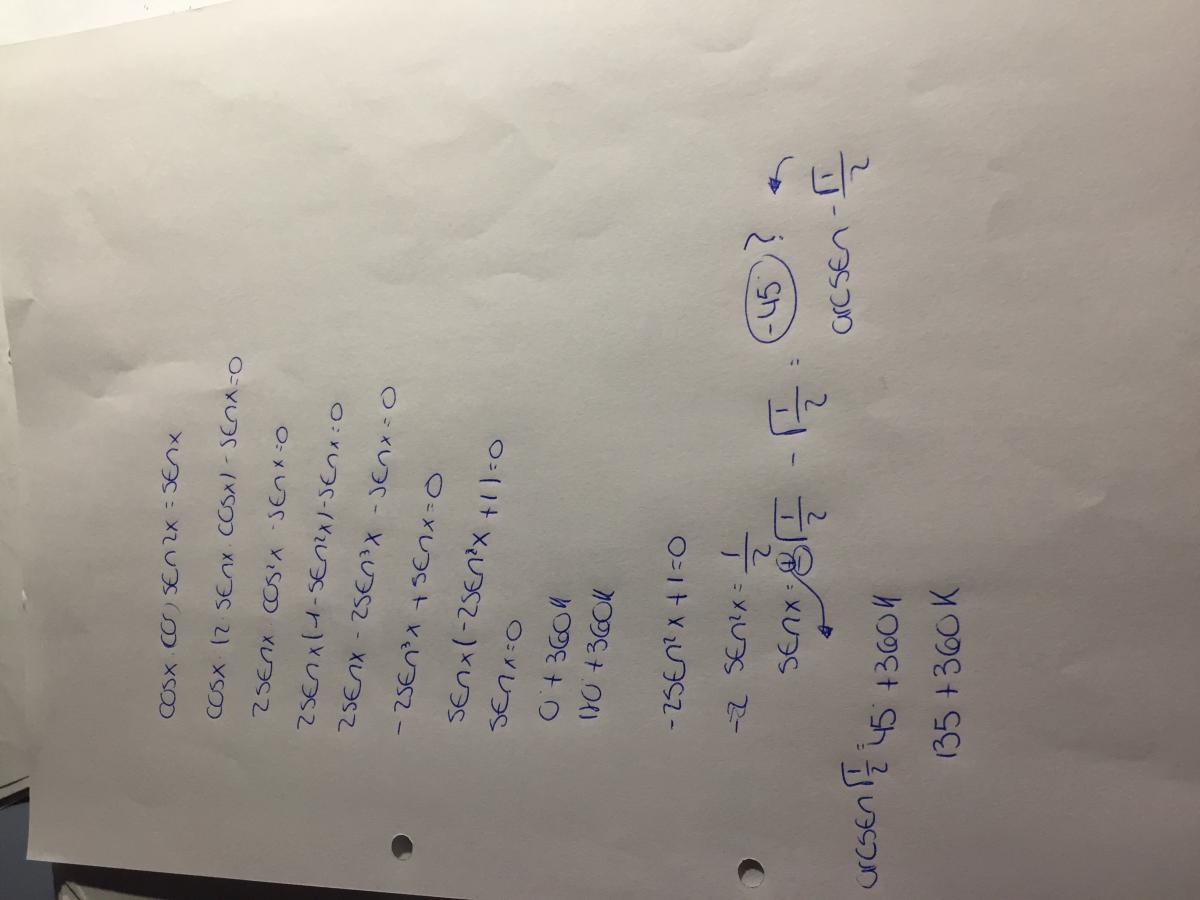 cosx · sen2x = senx
cosx · (2 senx · cosx) - senx = 0
2senx · cos²x - senx = 0
2senx (1 - sen²x) - senx = 0
2senx - 2sen³x - senx = 0
-2sen³x + senx = 0
senx (-2sen²x + 1) = 0
senx = 0
0° + 360K
180° + 360K
-2sen²x + 1 = 0
sen²x = 1/2
senx = ± √1/2 - √1/2 = -45° ?
arcsen √1/2 = 45° + 360K arcsen - √1/2
135 + 360K